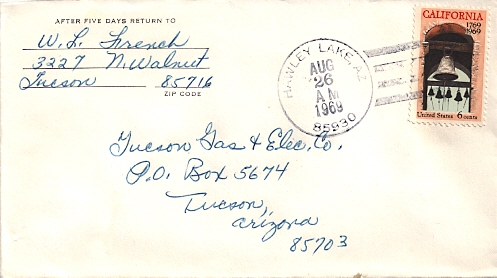 AFTER FIVE DAYS RETURN TO
W. L. French
3227 N. Walnut
Tucson 85716
ZIP CODE
HAWLEY LAKE, AZ
AUG
26
AM
1969
85930
CALIFORNIA
1769
1969
United States 6 cents
Tucson Gas & Elec. Co.
P.O. Box 5674
Tucson,
Arizona
85703